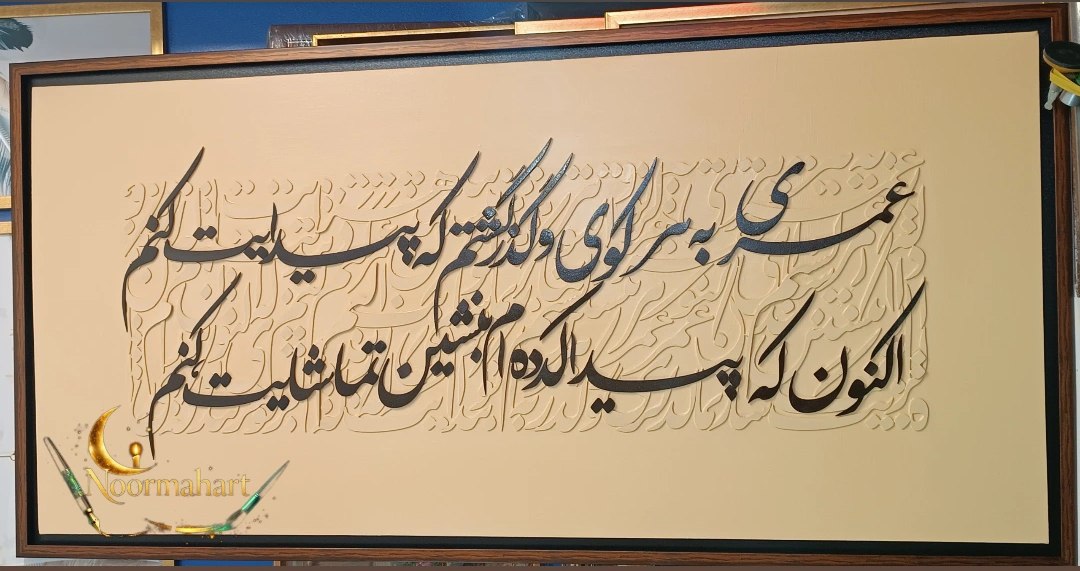 عمری به هر کوی و گذر گشتم که پیدایت کنم
اکنون که پیدا کرده‌ام بنشین تماشایت کنم
Noormahart